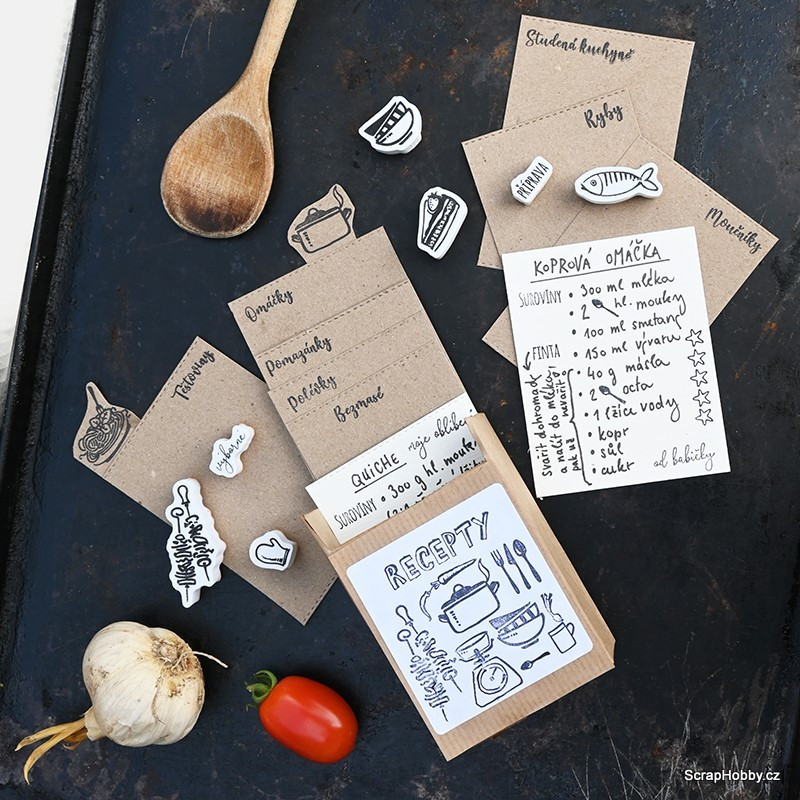 Studená kuchyně
Ryby
PŘÍPRAVA
Moučníky
KOPROVÁ OMÁČKA
SUROVINY
• 300 ml mléka
• 2 hl. mouky
100 ml smetany
• 150 ml vývaru
• 40 g másla
• 2 octa
• 1 lžíce vody
• kopr
• sůl
• cukr
FINTA
svařit dohromady
a nalít do mléka,
pak už nevařit!
od babičky
Omáčky
Pomazánky
Polévky
Bezmasé
Těstoviny
výborné
QUICHE moje oblíbené
SUROVINY • 300 g hl. mouky
RECEPTY
ScrapHobby.cz